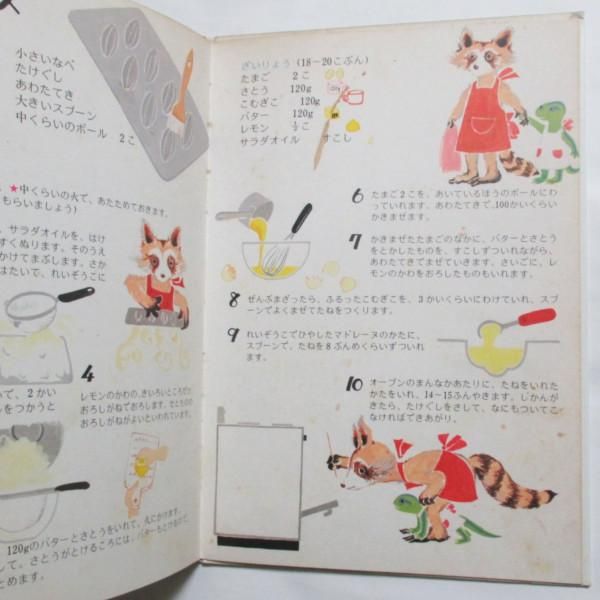 小さいなべ
たけぐし
あわたてき
大きいスプーン
中くらいのボール 2こ
★中くらいの火で、あたためておきます。
もらいましょう)
サラダオイルを、はけ
すくぬります。そのうえ
かけてまぶします。さか
はたいて、れいぞうこに
4
レモンのかわの、きいろいところだけ
おろしがねでおろします。せとものの
おろしがねがよいといわれています。
いで、2かい
ルをつかうと
120gのバターとさとうをいれて、火にかけます。
して。さとうがとけるころには、バターもとけるので、
とめます。
ざいりょう (18〜20こぶん)
たまご 2こ
さとう 120g
こむぎこ 120g
バター 120g
レモン ½こ
サラダオイル すこし
6 たまご2こを、あいているほうのボールにわ
っていれます。あわたてきで、100かいくらい
かきまぜます。
7 かきまぜたたまごのなかに、バターとさとう
をとかしたものを、すこしずついれながら、
あわたてきでまぜていきます。さいごに、レ
モンのかわをおろしたものもいれます。
8 ぜんぶまざったら、ふるったこむぎこを、3かいくらいにわけていれ、スプ
ーンでよくまぜてたねをつくります。
9 れいぞうこでひやしたマドレーヌのかたに、
スプーンで、たねを8ぶんめくらいずついれ
ます。
10 オーブンのまんなかあたりに、たねをいれた
かたをいれ、14〜15ふんやきます。じかんが
きたら、たけぐしをさして、なにもついてこ
なければできあがり。